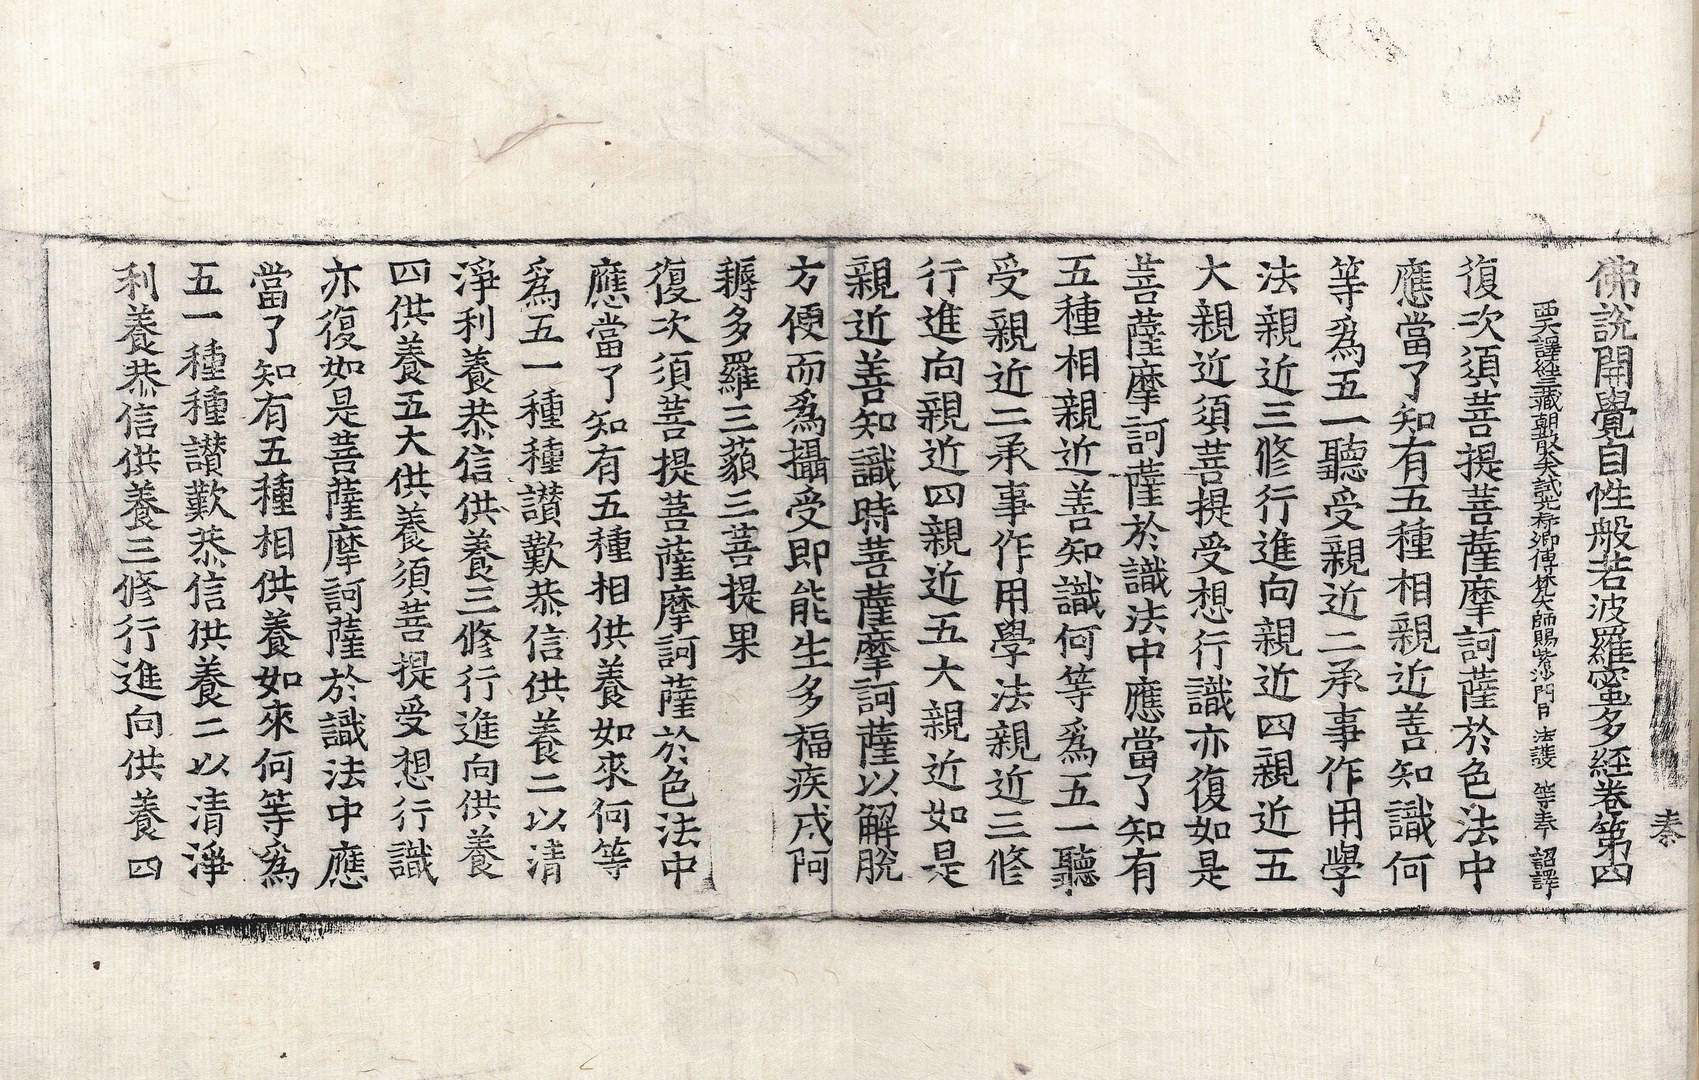 佛說開覺自性般若波羅蜜多經卷第四 秦
西天譯經三藏朝散大夫試光祿卿傳梵大師賜紫沙門臣 法護 等奉 詔譯
復次須菩提菩薩摩訶薩於色法中
應當了知有五種相親近善知識何
等爲五一聽受親近二承事作用學
法親近三修行進向親近四親近五
大親近須菩提受想行識亦復如是
菩薩摩訶薩於識法中應當了知有
五種相親近善知識何等爲五一聽
受親近二承事作用學法親近三修
行進向親近四親近五大親近如是
親近善知識時菩薩摩訶薩以解脫
方便而爲攝受即能生多福疾成阿
耨多羅三藐三菩提果
復次須菩提菩薩摩訶薩於色法中
應當了知有五種相供養如來何等
爲五一種種讃歎恭信供養二以清
淨利養恭信供養三修行進向供養
四供養五大供養須菩提受想行識
亦復如是菩薩摩訶薩於識法中應
當了知有五種相供養如來何等爲
五一種種讃歎恭信供養二以清淨
利養恭信供養三修行進向供養四